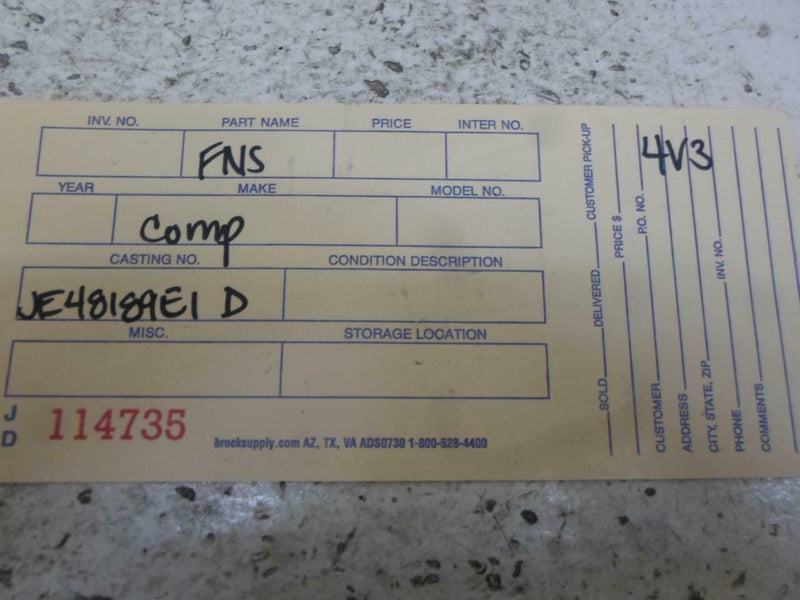 INV. NO. PART NAME PRICE INTER NO.
FNS
YEAR MAKE MODEL NO.
Comp
CASTING NO. CONDITION DESCRIPTION
JE48189E1 D
MISC. STORAGE LOCATION
J
D
114735
brocksupply.com AZ, TX, VA ADS0730 1-800-528-4400
SOLD DELIVERED CUSTOMER PICK-UP
PRICE $
P.O. NO.
4V3
CUSTOMER
ADDRESS
CITY, STATE, ZIP INV. NO.
PHONE
COMMENTS